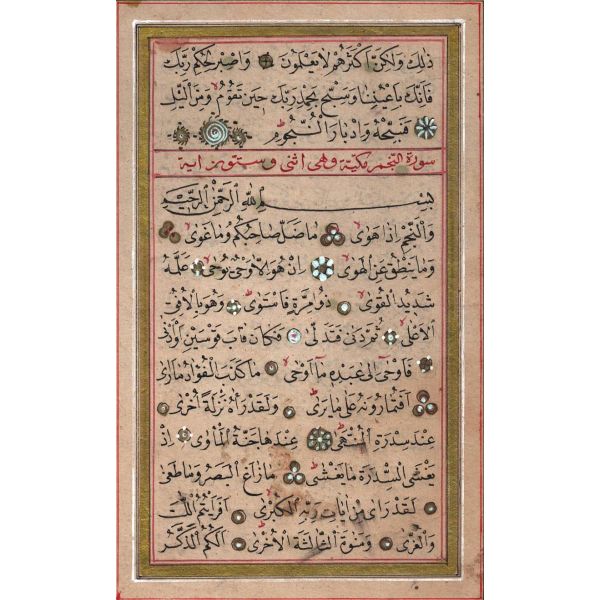 ذٰلِكَ وَلٰكِنَّ اَكْثَرَهُمْ لَا يَعْلَمُونَ وَاصْبِرْ لِحُكْمِ رَبِّكَ
فَاِنَّكَ بِاَعْيُنِنَا وَسَبِّحْ بِحَمْدِ رَبِّكَ حِينَ تَقُومُ وَمِنَ الَّيْلِ
فَسَبِّحْهُ وَاِدْبَارَ النُّجُومِ
سورة النجم مكية وهى اثنى وستون اية
بِسْمِ اللّٰهِ الرَّحْمٰنِ الرَّحِيمِ
وَالنَّجْمِ اِذَا هَوٰى مَا ضَلَّ صَاحِبُكُمْ وَمَا غَوٰى
وَمَا يَنْطِقُ عَنِ الْهَوٰى اِنْ هُوَ اِلَّا وَحْىٌ يُوحٰى عَلَّمَهُ
شَدِيدُ الْقُوٰى ذُو مِرَّةٍ فَاسْتَوٰى وَهُوَ بِالْاُفُقِ
الْاَعْلٰى ثُمَّ دَنٰى فَتَدَلّٰى فَكَانَ قَابَ قَوْسَيْنِ اَوْ اَدْنٰى
فَاَوْحٰى اِلٰى عَبْدِهِ مَا اَوْحٰى مَا كَذَبَ الْفُؤَادُ مَا رَاٰى
اَفَتُمَارُونَهُ عَلٰى مَا يَرٰى وَلَقَدْ رَاٰهُ نَزْلَةً اُخْرٰى
عِنْدَ سِدْرَةِ الْمُنْتَهٰى عِنْدَهَا جَنَّةُ الْمَاْوٰى اِذْ
يَغْشَى السِّدْرَةَ مَا يَغْشٰى مَا زَاغَ الْبَصَرُ وَمَا طَغٰى
لَقَدْ رَاٰى مِنْ اٰيَاتِ رَبِّهِ الْكُبْرٰى اَفَرَاَيْتُمُ اللَّاتَ
وَالْعُزّٰى وَمَنٰوةَ الثَّالِثَةَ الْاُخْرٰى اَلَكُمُ الذَّكَرُ